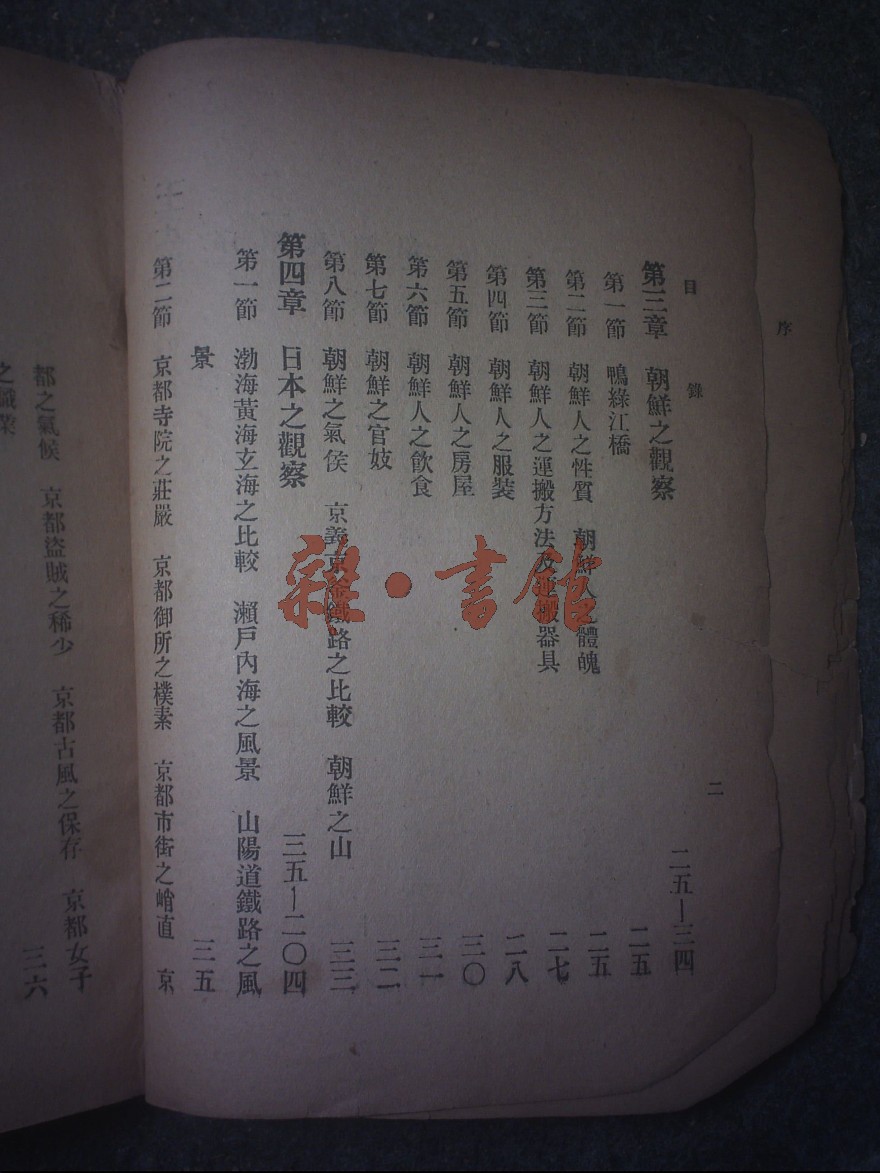 序
目錄
二
第三章 朝鮮之觀察 二五—三四
第一節 鴨綠江橋 二五
第二節 朝鮮人之性質 朝鮮人之體魄 二五
第三節 朝鮮人之運搬方法及運搬器具 二七
第四節 朝鮮人之服裝 二八
第五節 朝鮮人之房屋 三〇
第六節 朝鮮人之飲食 三一
第七節 朝鮮之官妓 三二
第八節 朝鮮之氣侯 京義京釜鐵路之比較 朝鮮之山 三三
第四章 日本之觀察 三五—二〇四
第一節 渤海黃海玄海之比較 瀨戶內海之風景 山陽道鐵路之風
景 三五
第二節 京都寺院之莊嚴 京都御所之樸素 京都市街之峭直 京
都之氣候 京都盜賊之稀少 京都古風之保存 京都女子
之職業 三六
雜·書館